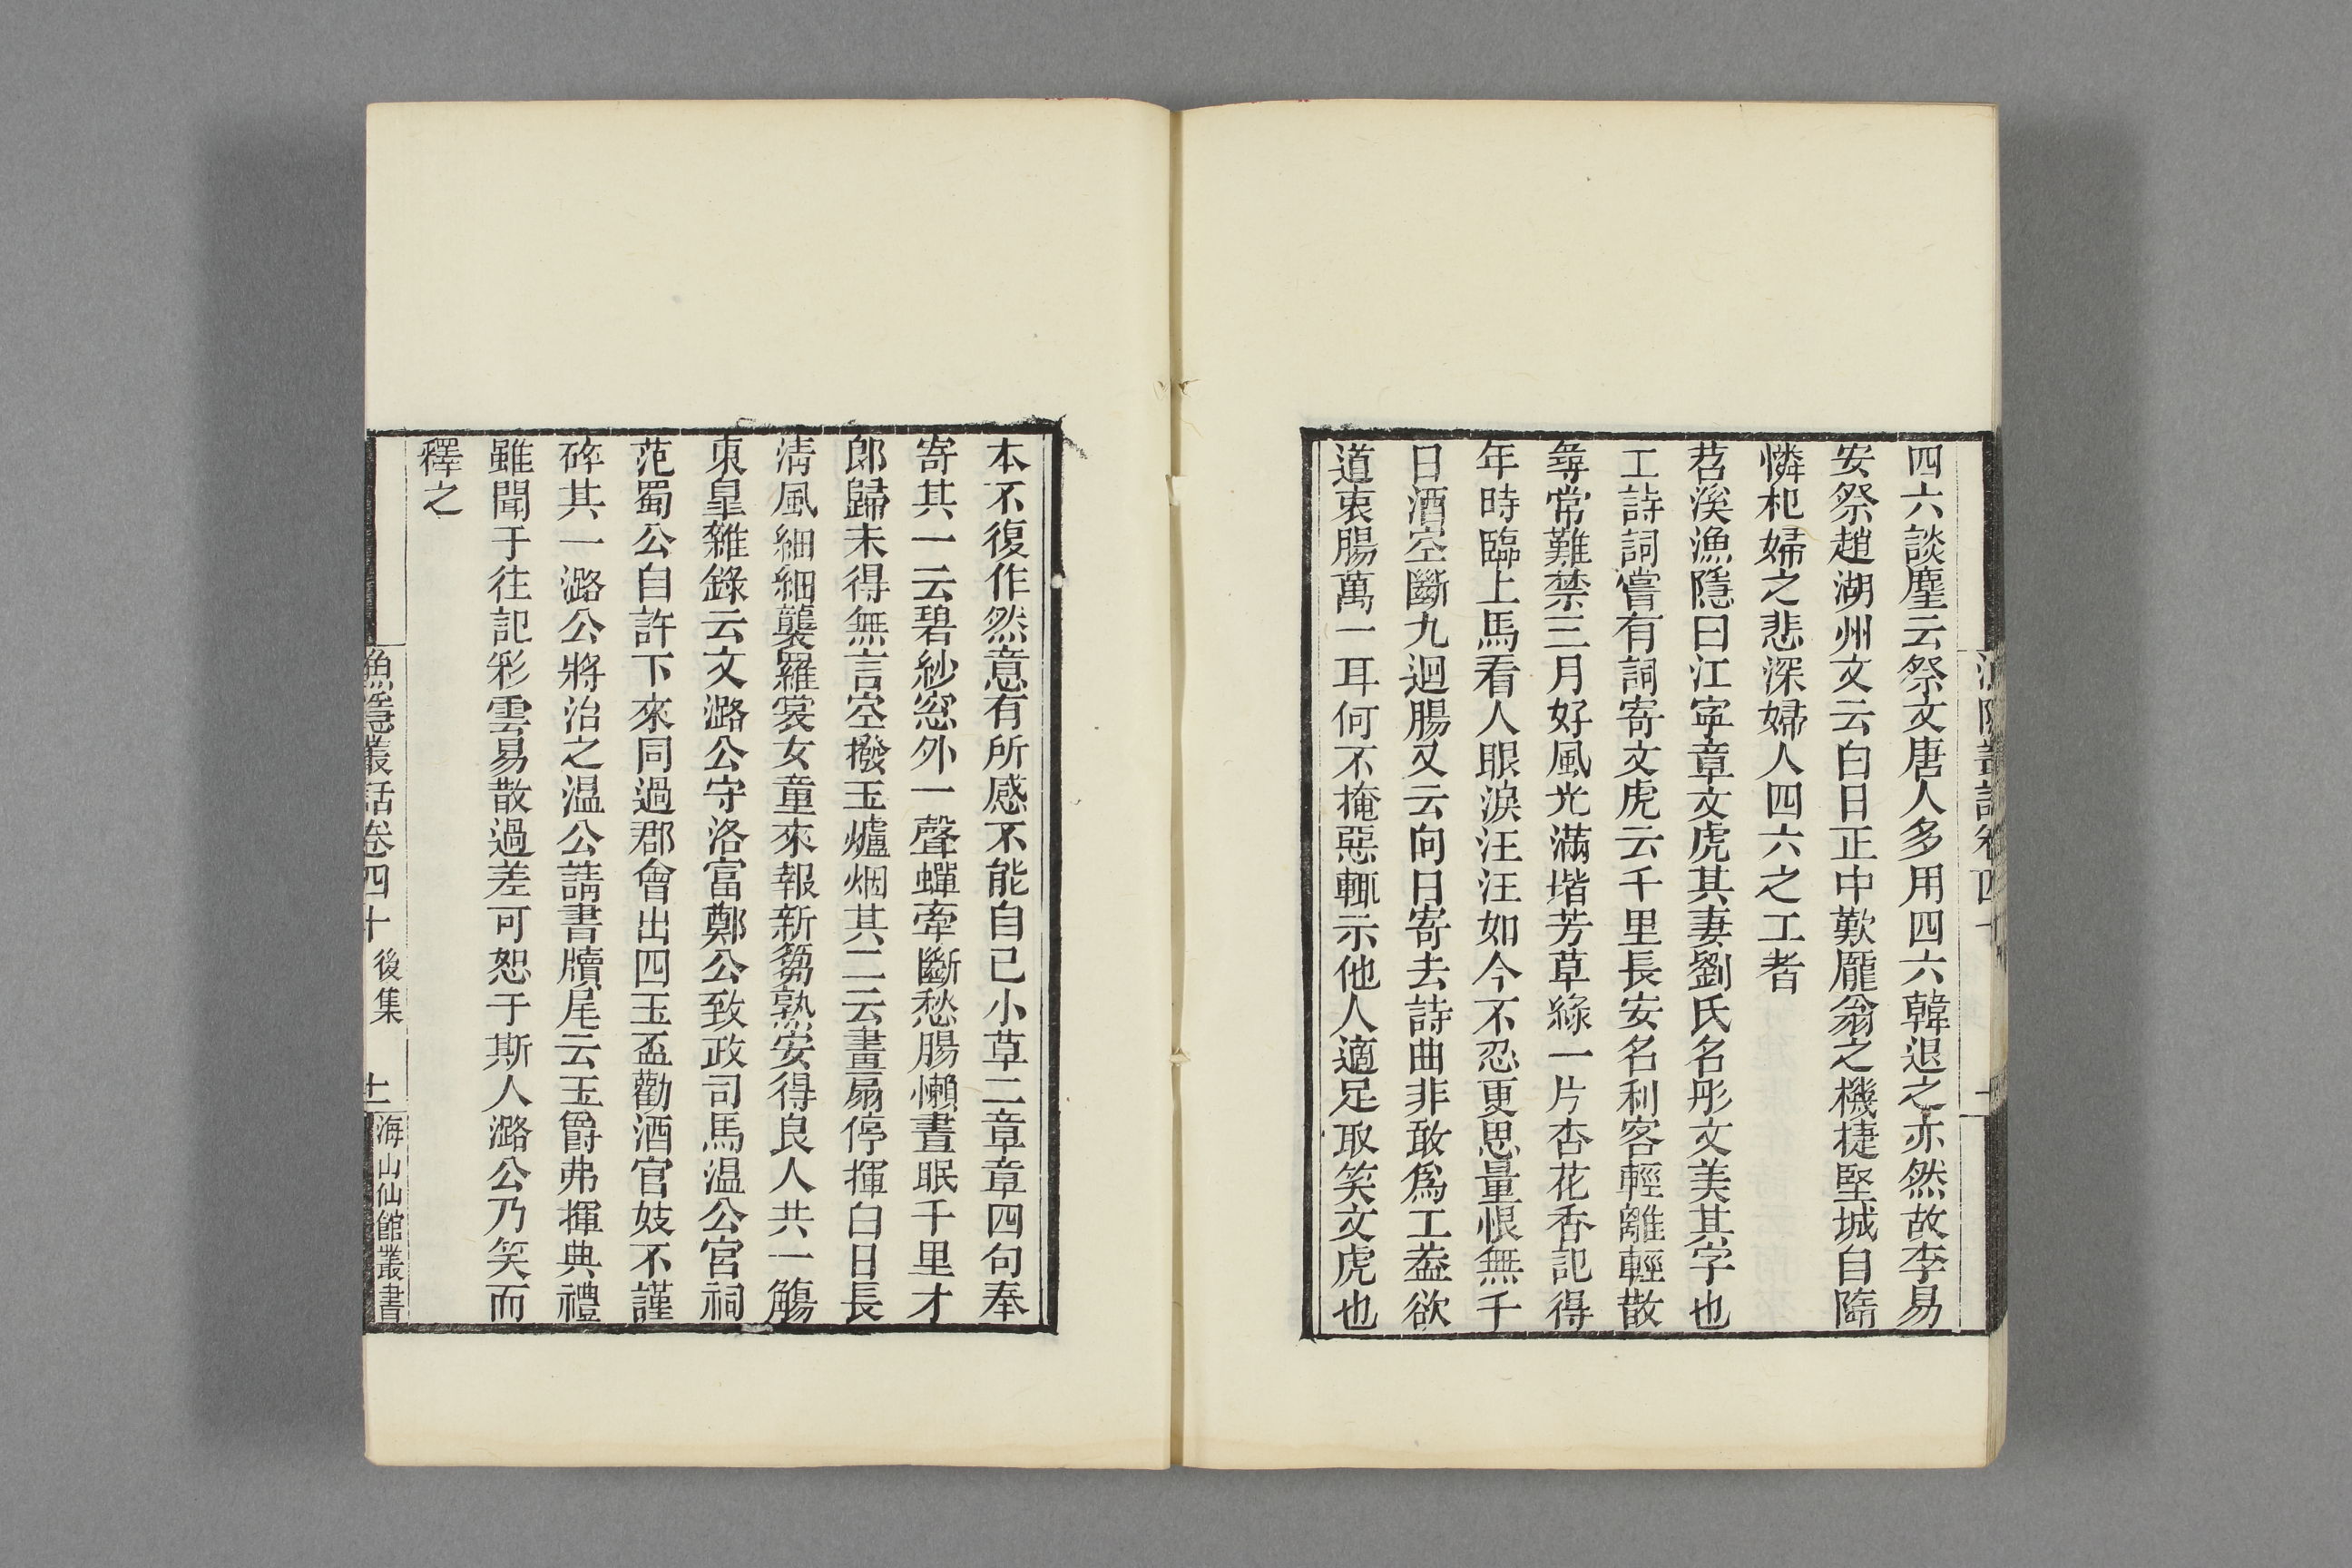 四六談麈云祭文唐人多用四六韓退之亦然故李易
安祭趙湖州文云白日正中歎龐翁之機捷堅城自隮
憐杞婦之悲深婦人四六之工者
苕溪漁隱曰江寧章文虎其妻劉氏名彤文美其字也
工詩詞嘗有詞寄文虎云千里長安名利客輕離輕散
尋常難禁三月好風光滿堦芳草綠一片杏花香記得
年時臨上馬看人眼淚汪汪如今不忍更思量恨無千
日酒空斷九迴腸又云向日寄去詩曲非敢爲工葢欲
道衷腸萬一耳何不掩惡輒示他人適足取笑文虎也
本不復作然意有所感不能自已小草二章章四句奉
寄其一云碧紗窓外一聲蟬牽斷愁腸懶晝眠千里才
郎歸未得無言空撥玉爐烟其二云畫扇停揮白日長
清風細細襲羅裳女童來報新篘熟安得良人共一觴
東皐雜錄云文潞公守洛富鄭公致政司馬温公宮祠
范蜀公自許下來同過郡會出四玉盃勸酒官妓不謹
碎其一潞公將治之温公請書牘尾云玉爵弗揮典禮
雖聞于往記彩雲易散過差可恕于斯人潞公乃笑而
釋之
漁隱叢話卷四十 後集 十一 海山仙館叢書